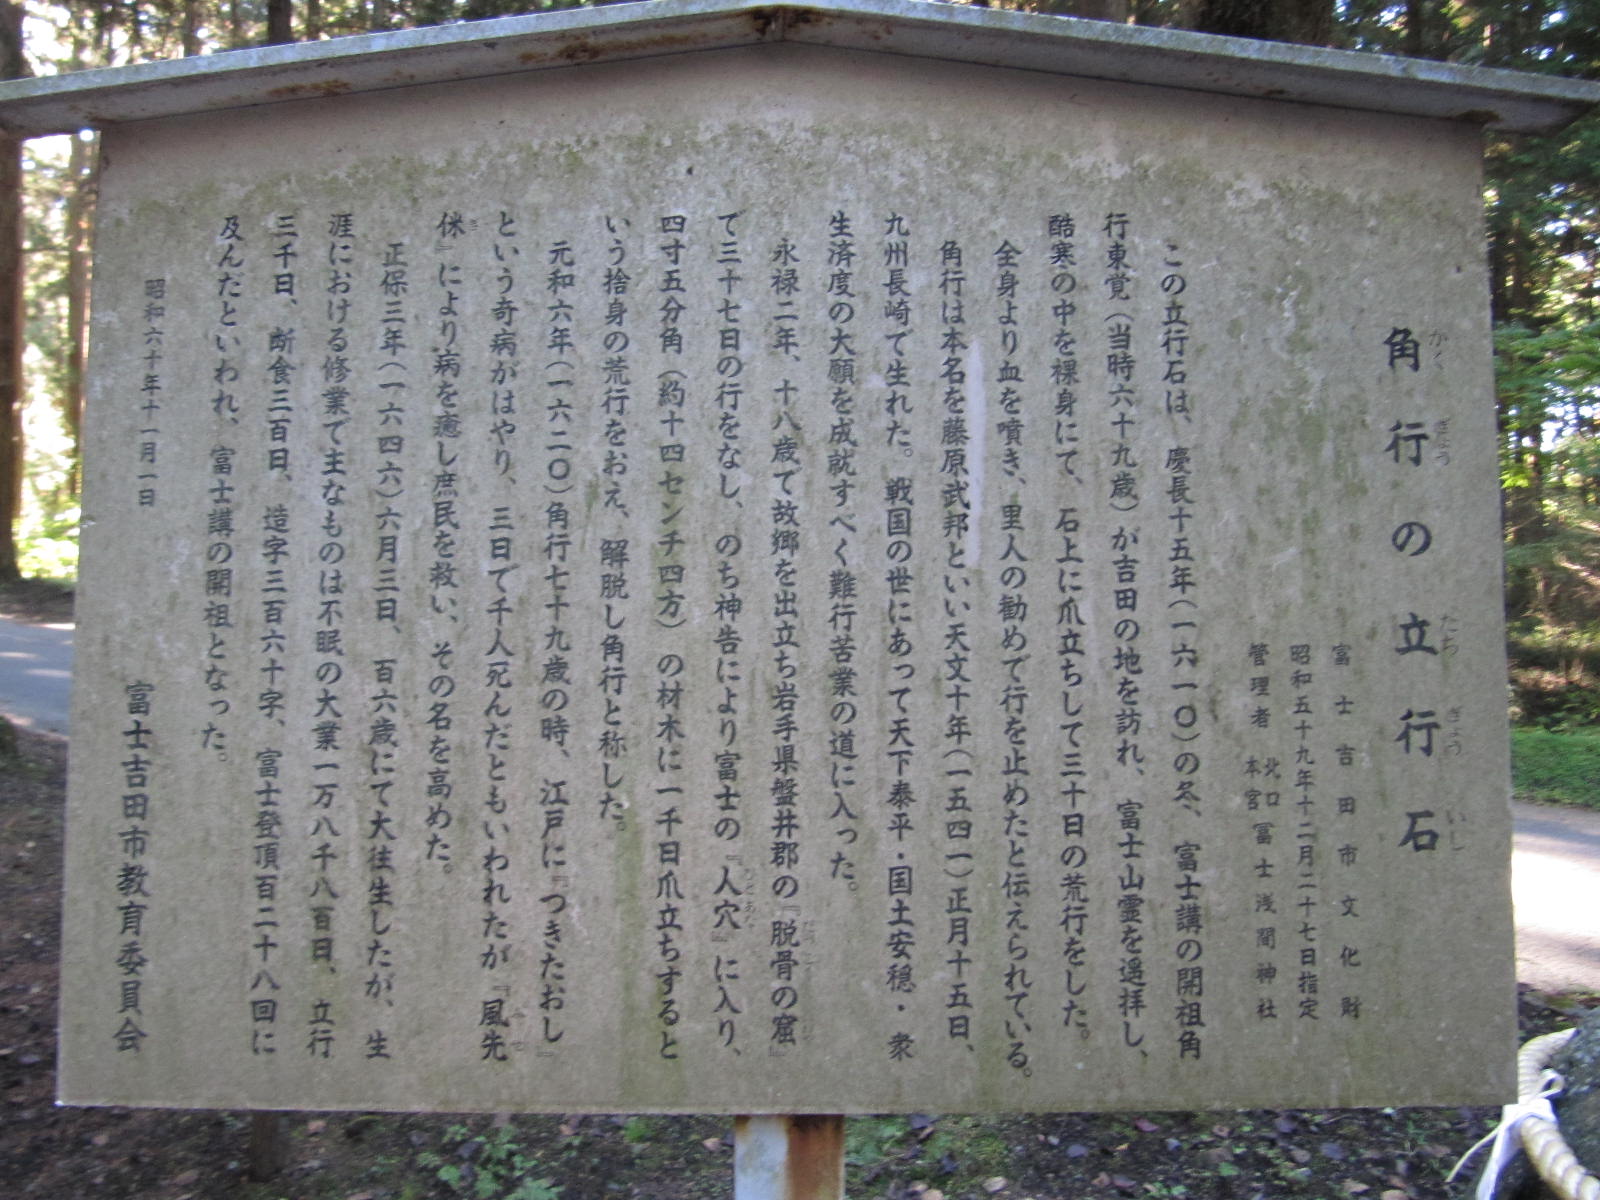 角行の立行石
かくぎょうたちぎょういし
富士吉田市文化財
昭和五十九年十二月二十七日指定
管理者 北口本宮冨士浅間神社
この立行石は、慶長十五年(一六一〇)の冬、富士講の開祖角
行東覚(当時六十九歳)が吉田の地を訪れ、富士山霊を遥拝し、
酷寒の中を裸身にて、石上に爪立ちして三十日の荒行をした。
全身より血を噴き、里人の勧めで行を止めたと伝えられている。
角行は本名を藤原武邦といい天文十年(一五四一)正月十五日、
九州長崎で生れた。戦国の世にあって天下泰平・国土安穏・衆
生済度の大願を成就すべく難行苦業の道に入った。
永禄二年、十八歳で故郷を出立ち岩手県盤井郡の『脱骨の窟』
で三十七日の行をなし、のち神告により富士の『人穴』に入り、
ひとあな
四寸五分角(約十四センチ四方)の材木に一千日爪立ちすると
いう捨身の荒行をおえ、解脱し角行と称した。
元和六年(一六二〇)角行七十九歳の時、江戸に『つきたおし』
という奇病がはやり、三日で千人死んだともいわれたが『風先
ふせ
侎』により病を癒し庶民を救い、その名を高めた。
ぎ
正保三年(一六四六)六月三日、百六歳にて大往生したが、生
涯における修業で主なものは不眠の大業一万八千八百日、立行
三千日、断食三百日、造字三百六十字、富士登頂百二十八回に
及んだといわれ、富士講の開祖となった。
昭和六十年十一月一日
富士吉田市教育委員会